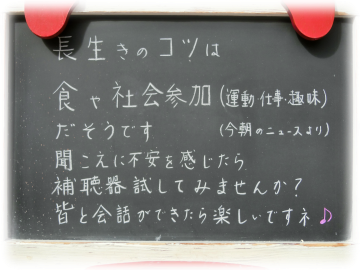 長生きのコツは
食や社会参加(運動・仕事・趣味)
だそうです (今朝のニュースより)
聞こえに不安を感じたら
補聴器試してみませんか?
皆と会話ができたら楽しいですネ♪